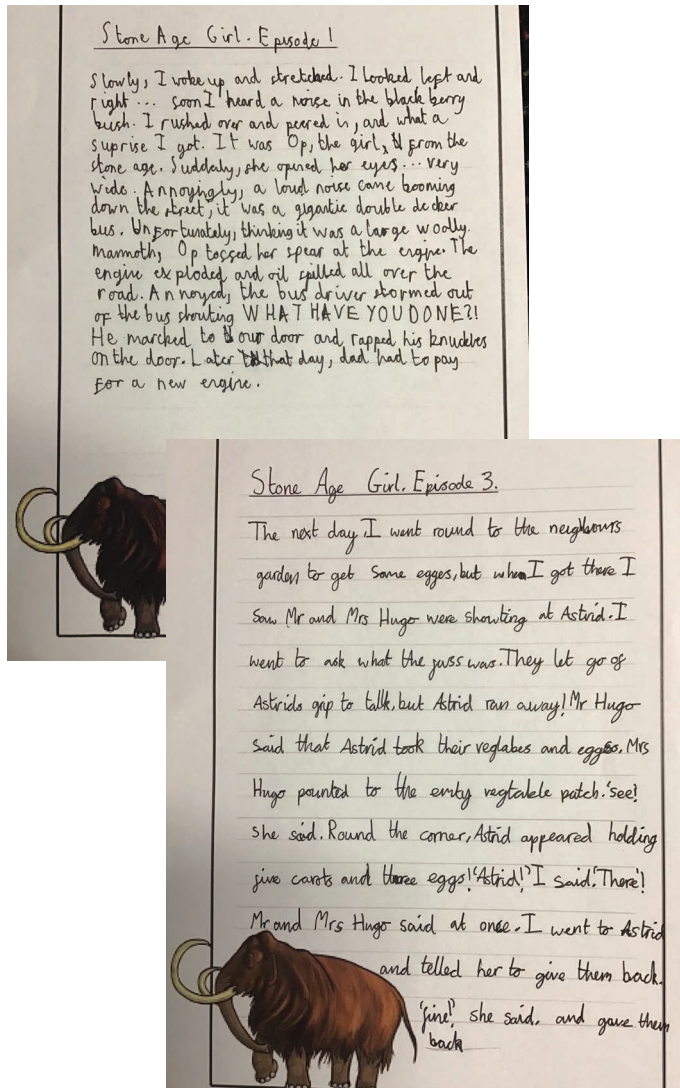 Stone Age Girl. Episode 1
Slowly, I woke up and stretched. I looked left and
right... soon I heard a noise in the black berry
bush. I rushed over and peered in, and what a
suprise I got. It was Op, the girl, from the
stone age. Suddaly, she opened her eyes... very
wide. Annoyingly, a loud noise came booming
down the street, it was a gigantic double decker
bus. Unfortunately, thinking it was a large woolly
mammoth, Op tossed her spear at the engine. The
engine exploded and oil spilled all over the
road. Annoyed, the bus driver stormed out
of the bus shouting WHAT HAVE YOU DONE?!
He marched to our door and rapped his knuckles
on the door. Later that day, dad had to pay
for a new engine.
Stone Age Girl. Episode 3.
The next day, I went round to the neighbours
garden to get some egges, but when I got there I
saw Mr and Mrs Hugo were showting at Astrid. I
went to ask what the fuss was. They let go of
Astrids grip to talk, but Astrid ran away! Mr Hugo
said that Astrid took their veglabes and eggs. Mrs
Hugo pounted to the emty vegtable patch. 'see!
she said. Round the corner, Astrid appeared holding
five carots and three eggs! 'Astrid!' I said. 'There'!
Mr and Mrs Hugo said at once. I went to Astrid
and telled her to give them back.
'fine!' she said, and gave them
back